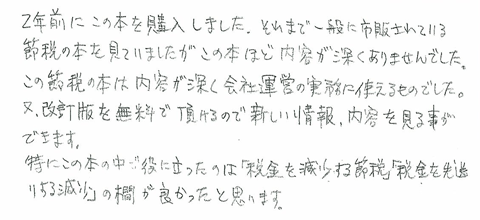 2年前にこの本を購入しました。それまで一般に市販されている
節税の本を見ていましたがこの本ほど内容が深くありませんでした。
この節税の本は内容が深く会社運営の実務に使えるものでした。
又、改訂版を無料で頂けるので新しい情報、内容を見る事が
できます。
特にこの本の中で役に立ったのは「税金を減少する節税」「税金を先送
りする減少」の欄が良かったと思います。